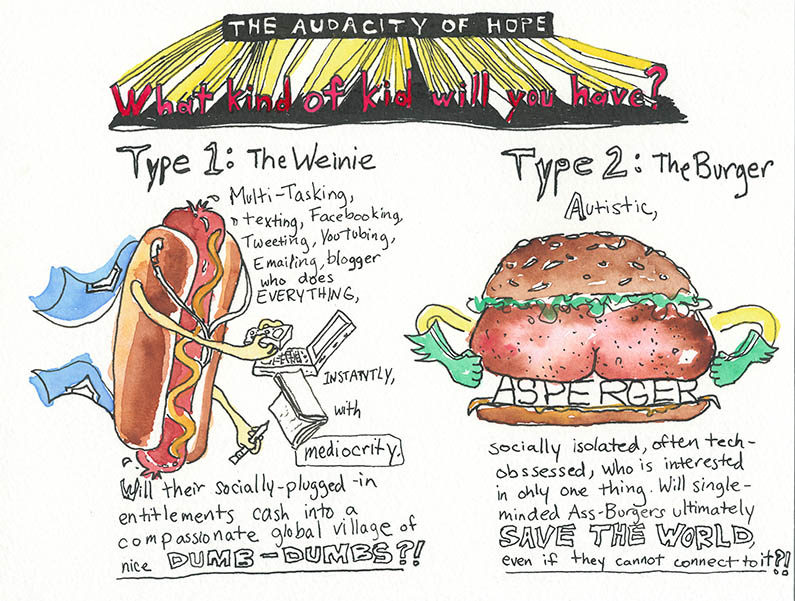 THE AUDACITY OF HOPE
What kind of kid will you have?
Type 1: The Weinie
Multi-Tasking,
texting, Facebooking,
Tweeting, YouTubing,
Emailing, blogger
who does
EVERYTHING,
INSTANTLY,
with
mediocrity.
Will their socially-plugged-in
entitlements cash into a
compassionate global village of
nice DUMB-DUMBS?!
Type 2: The Burger
Autistic,
ASPERGER
socially isolated, often tech-
obssessed, who is interested
in only one thing. Will single-
minded Ass-Burgers ultimately
SAVE THE WORLD,
even if they cannot connect to it?!